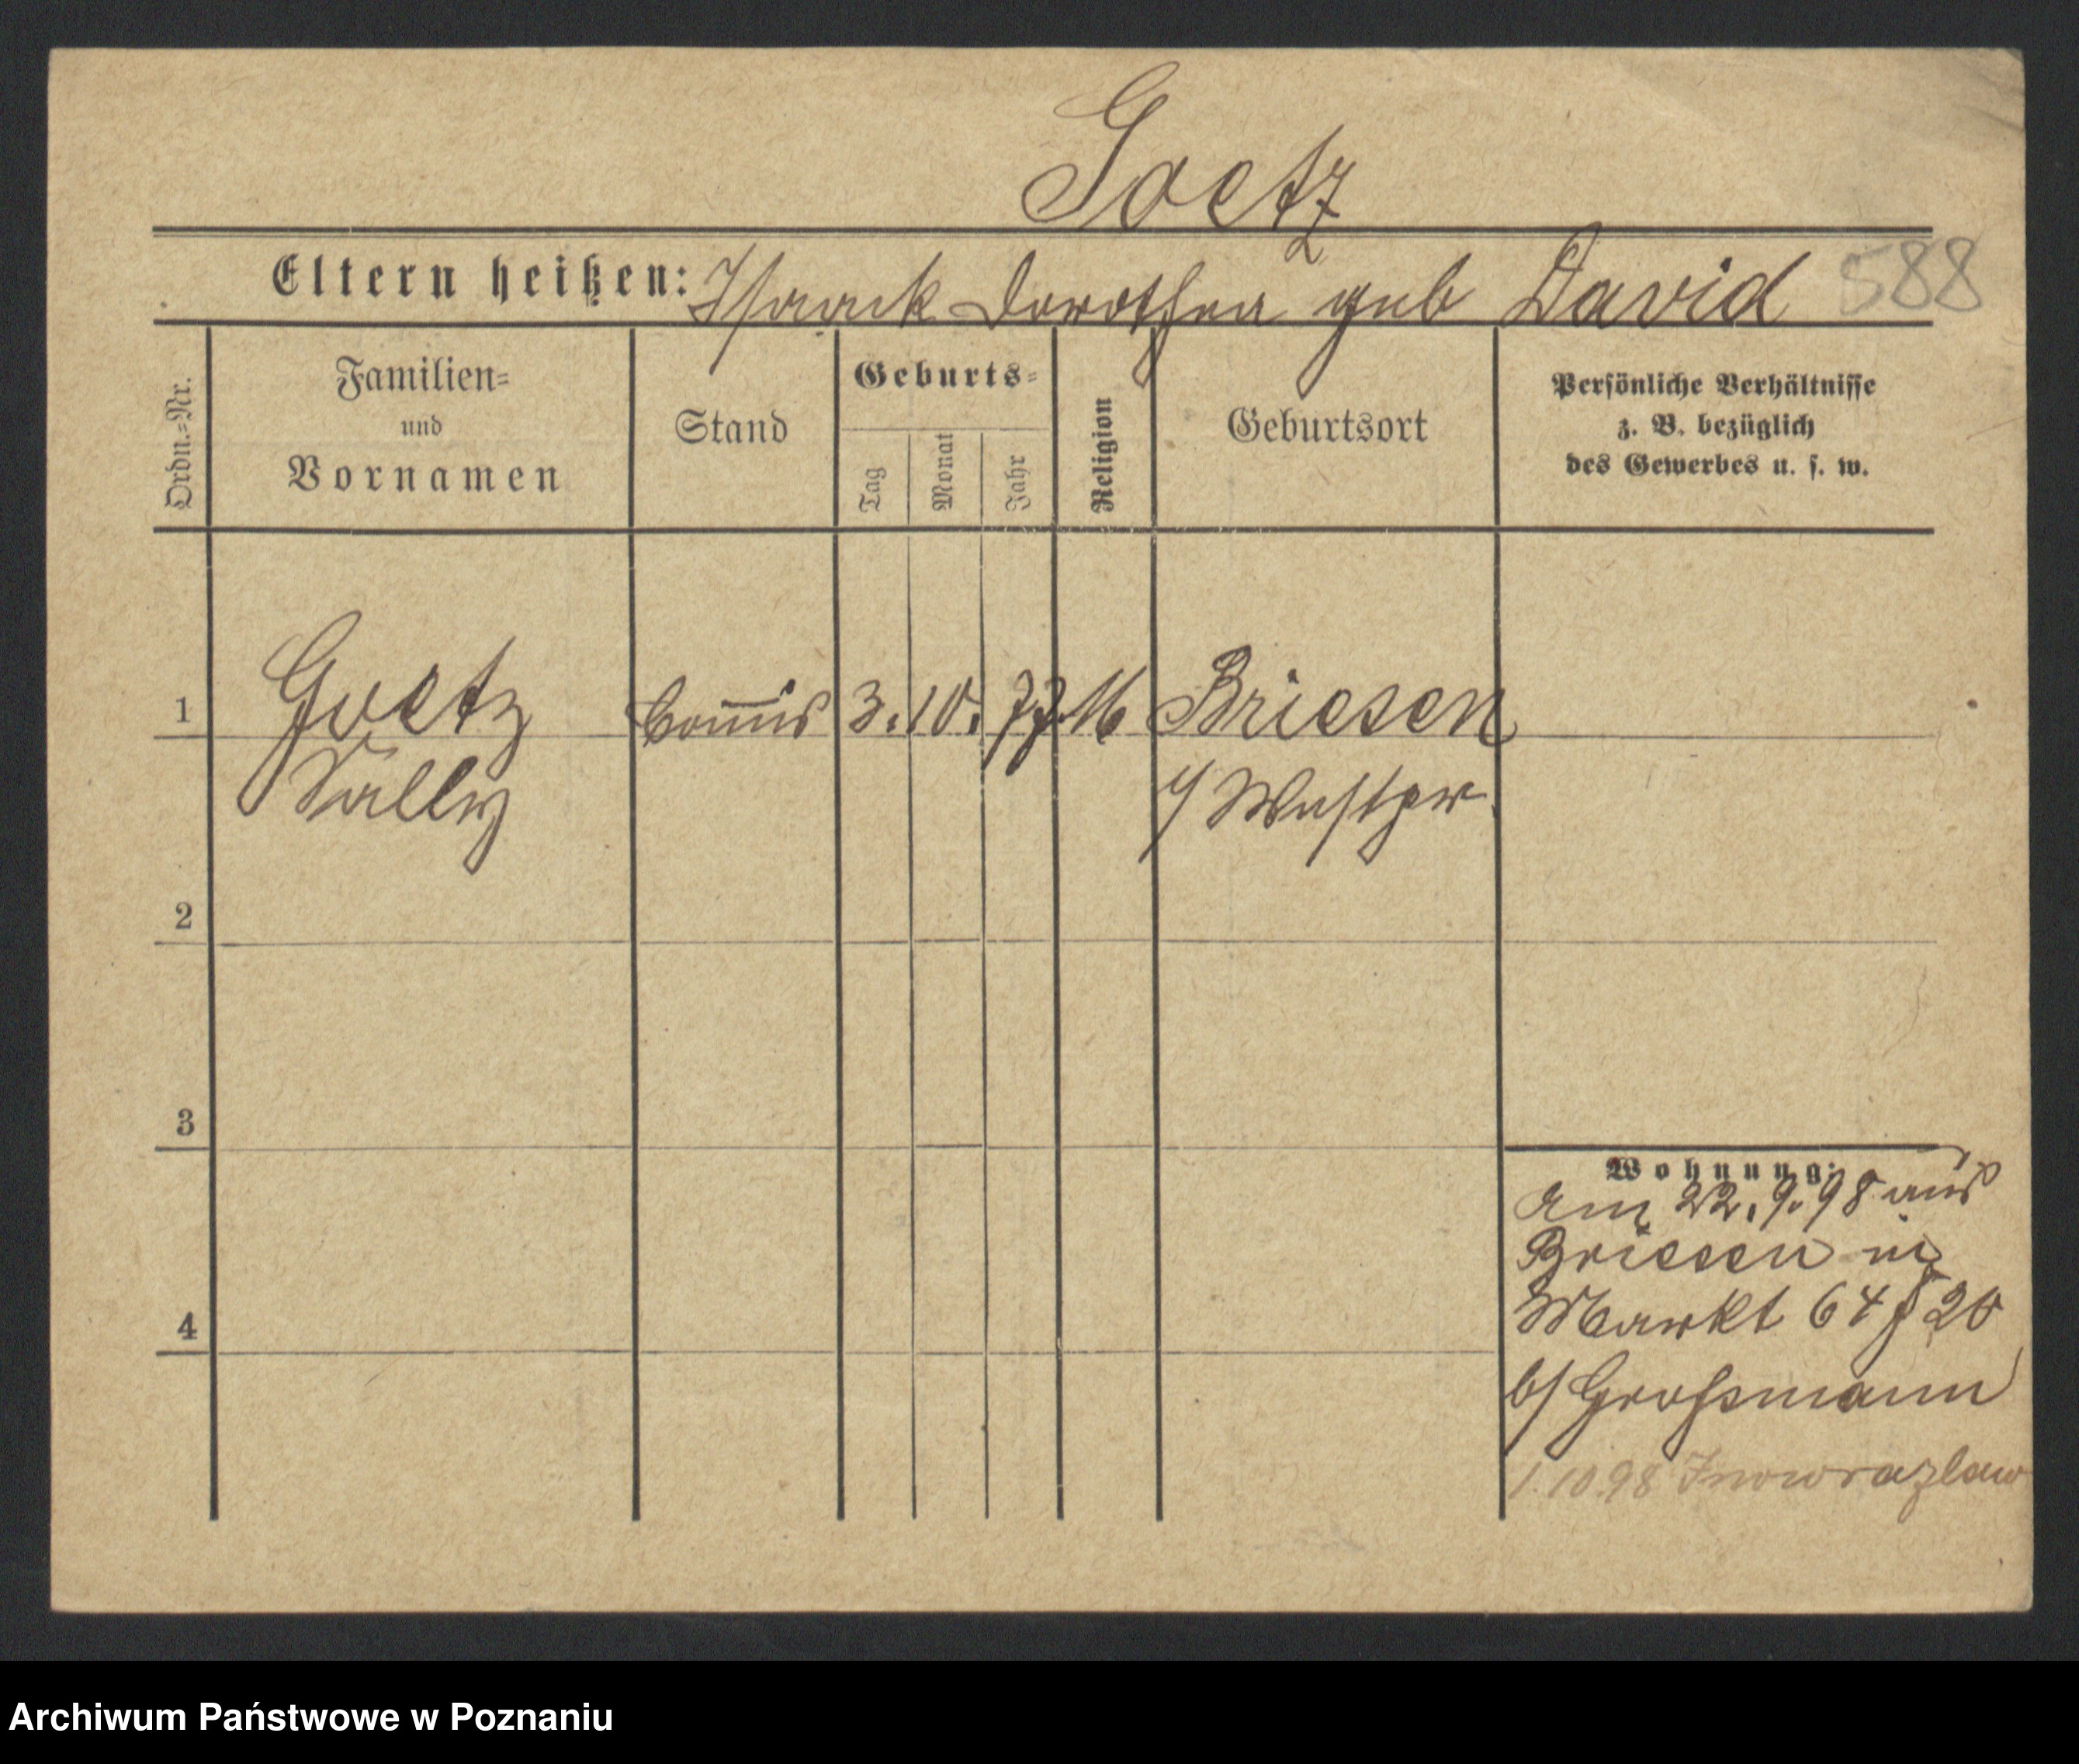 Goetz
Eltern heißen: Isaack Dorothea geb David 588
Ordn.=Nr.
Familien=
und
Vornamen
Stand
Geburts=
Tag
Monat
Jahr
Religion
Geburtsort
Persönliche Verhältnisse
z. B. bezüglich
des Gewerbes u. s. w.
1 Goetz Commis 3. 10. 77. M Briesen
Sally i/ Westpr.
2
3
4
Wohnung:
Am 22. 9. 98 aus
Briesen n.
Markt 64 20
b/ Großmann
1.10 98 Inowrazlaw
Archiwum Państwowe w Poznaniu